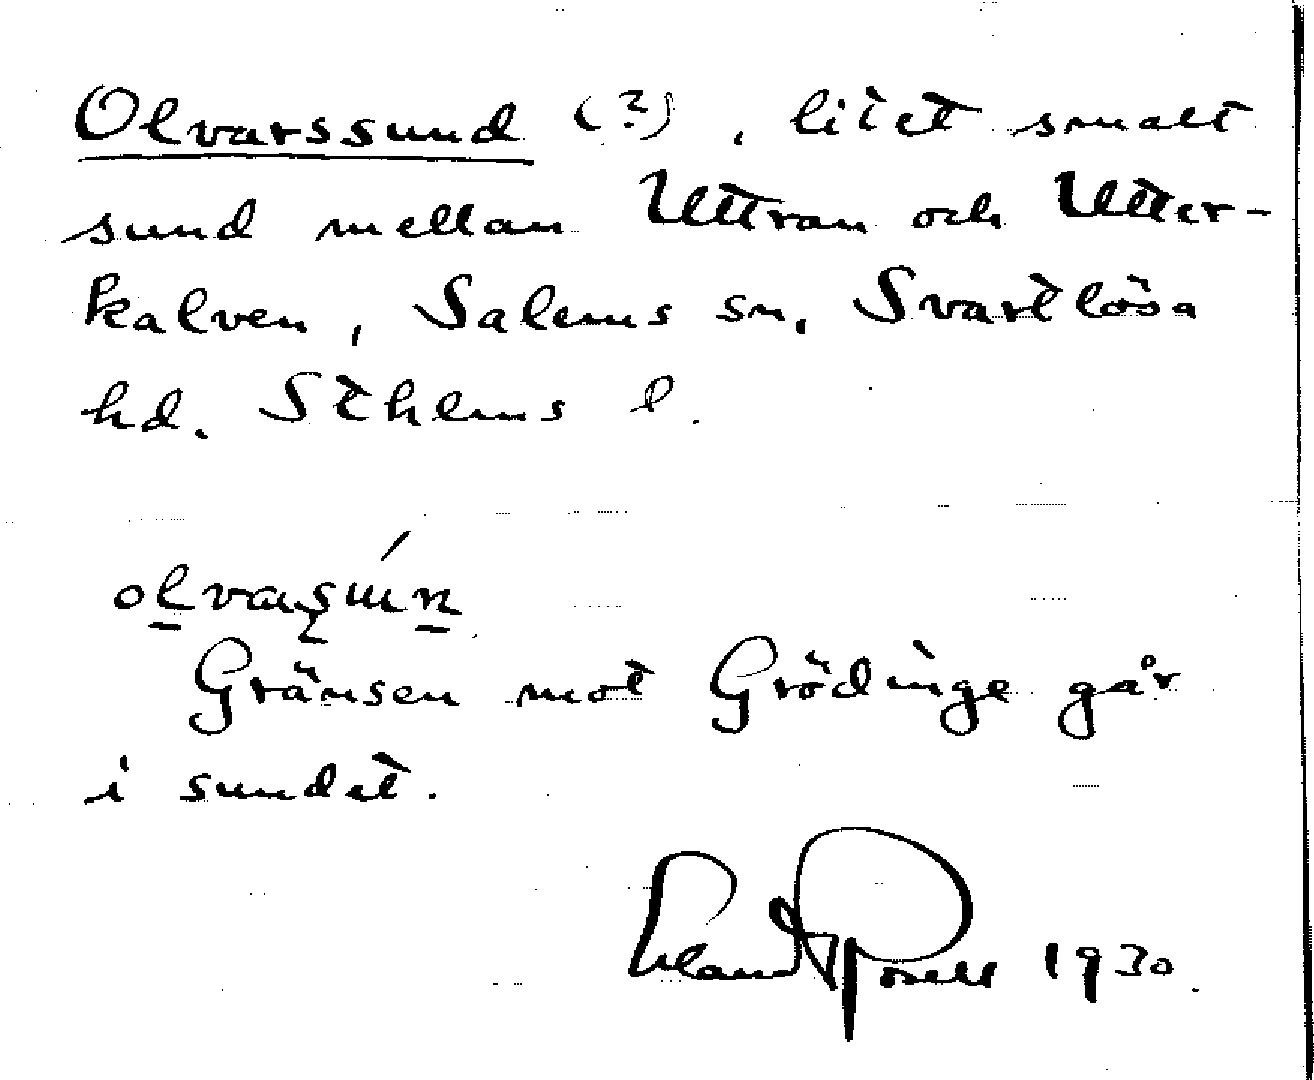 Olvarssund (?), litet smalt
sund mellan Uttran och Utter-
kalven, Salems sn, Svartlösa
hd. Sthlms l.
olvaṣún
Gränsen mot Grödinge går
i sundet.
Erland Rosell 1930